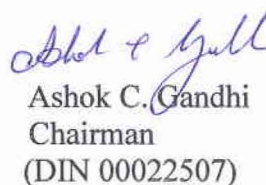 Ashok C. Gandhi
Chairman
(DIN 00022507)